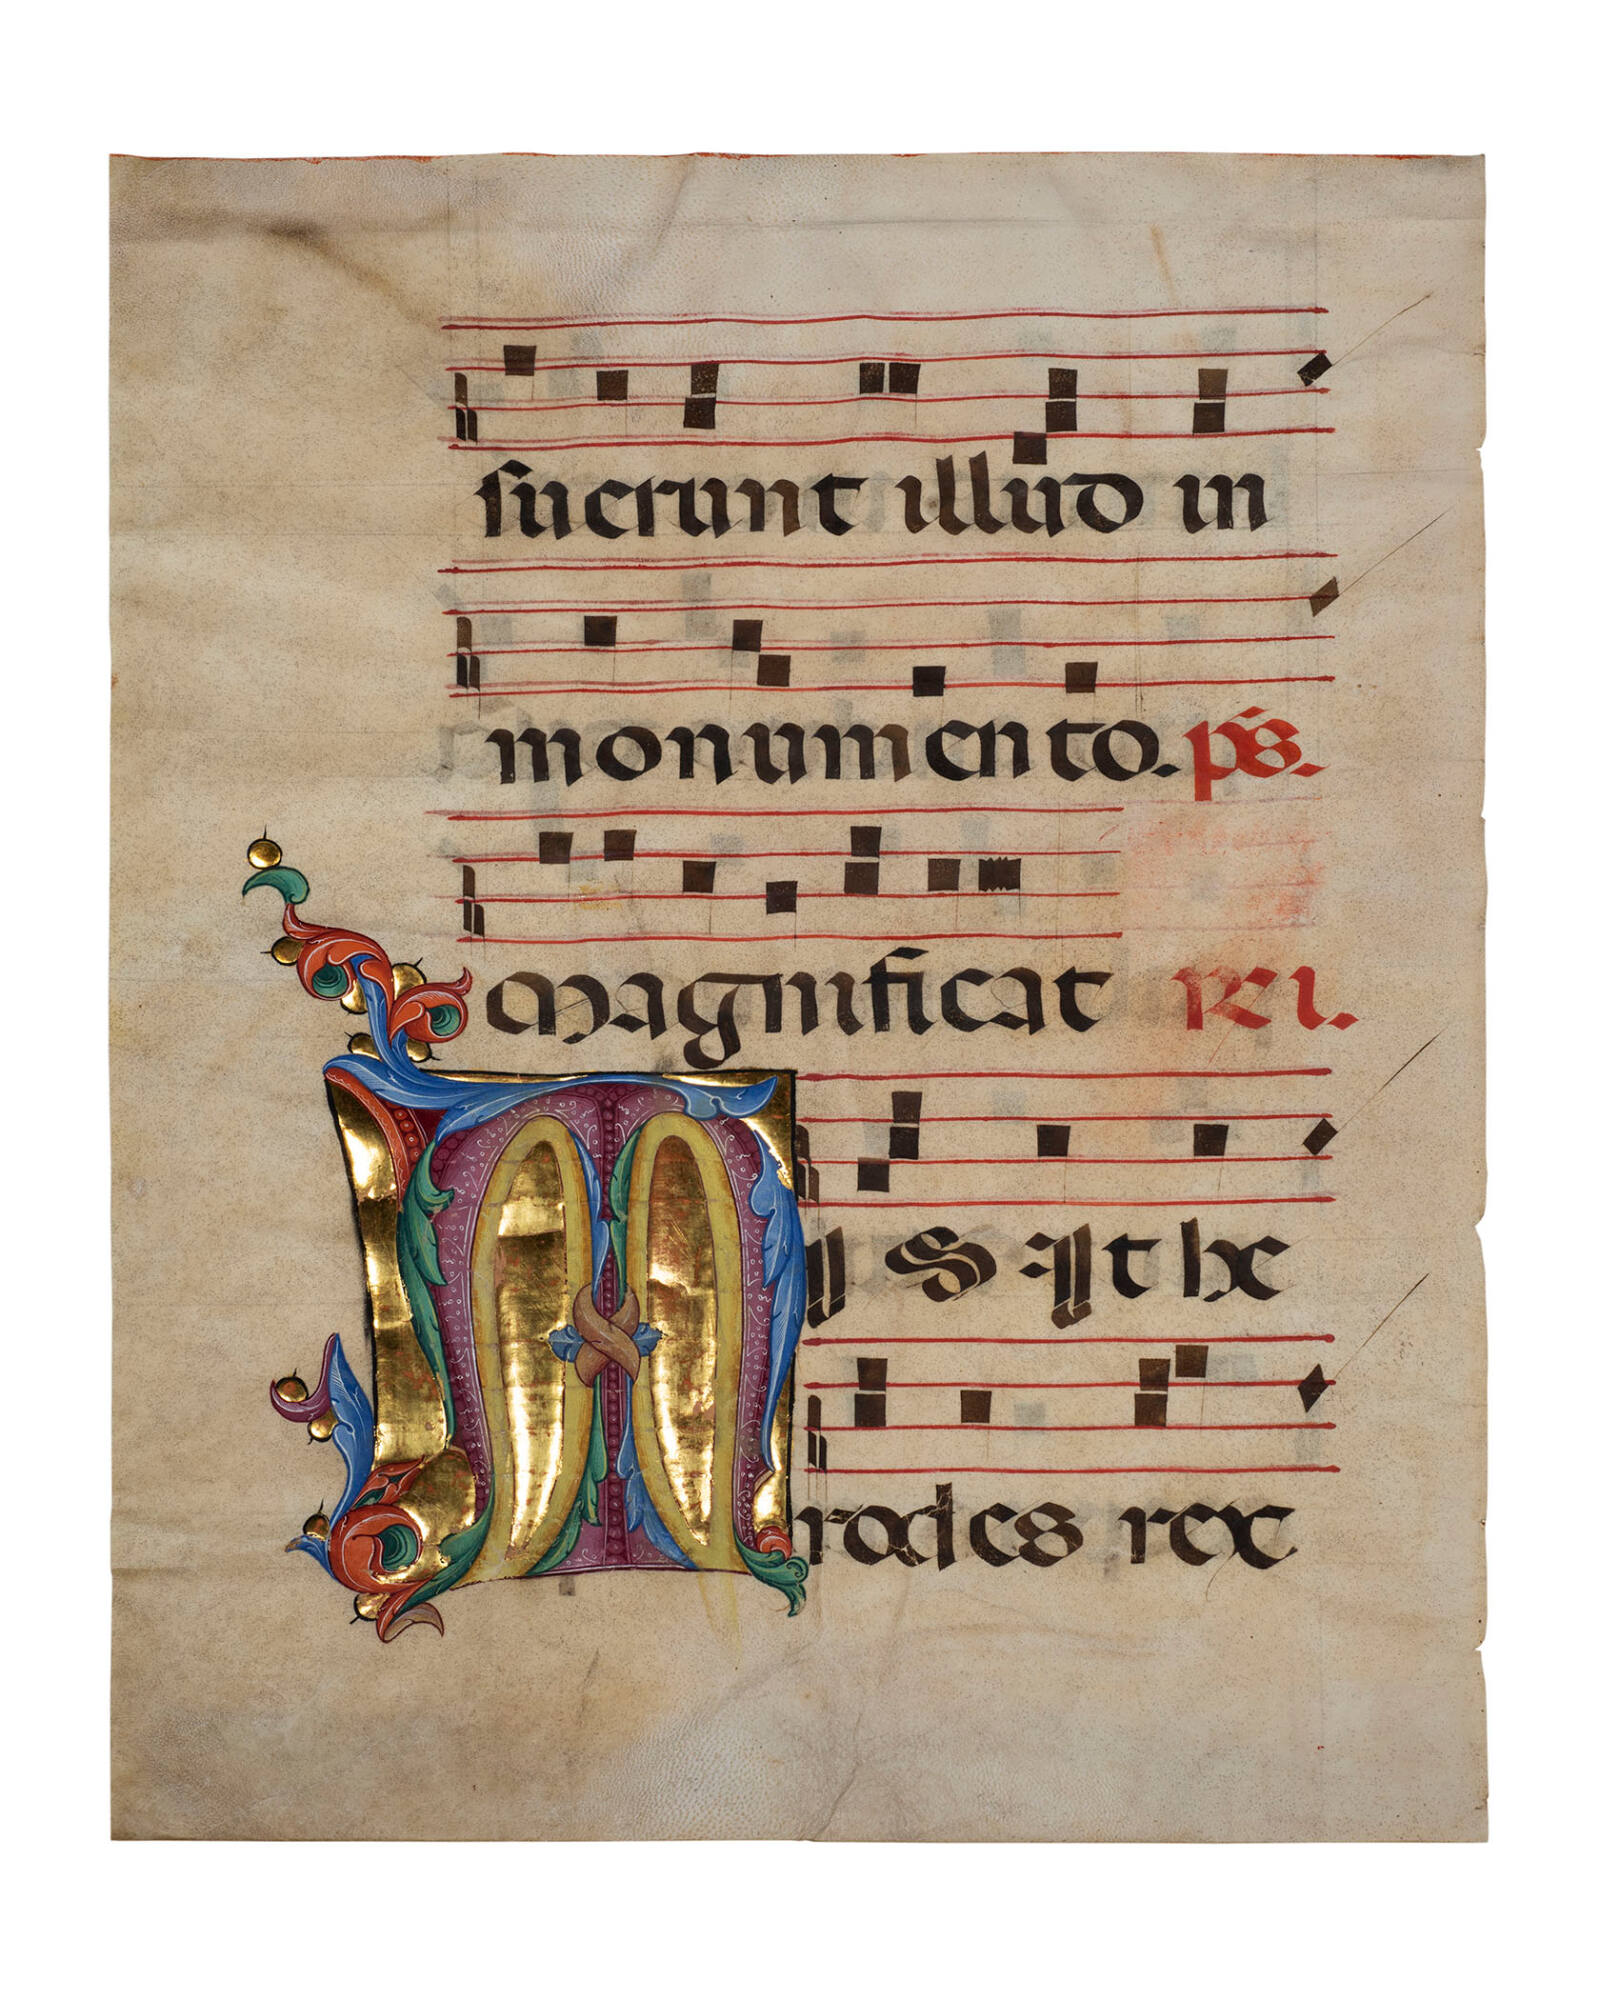 suerunt illud in
monumento. ps.
Magnificat rei.
M I S I t he
rodes rex